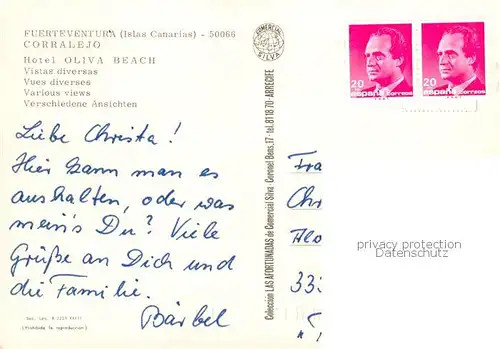 FUERTEVENTURA (Islas Canarias) - 50066
CORRALEJO
Hotel OLIVA BEACH
Vistas diversas
Vues diverses
Various views
Verschiedene Ansichten
Liebe Christa!
Hier kann man es
aushalten, oder was
mein's Du? Viele
Grüße an Dich und
die Familie.
Bärbel
(Prohibida la reproducción)
COMERCIAL
SILVA
Colección LAS AFORTUNADAS de Comercial Silva. Coronel Bens, 17 - tel. 81 18 70 - ARRECIFE
20
españa correos
20
españa correos
Fra
Chr
333
privacy protection
Datenschutz